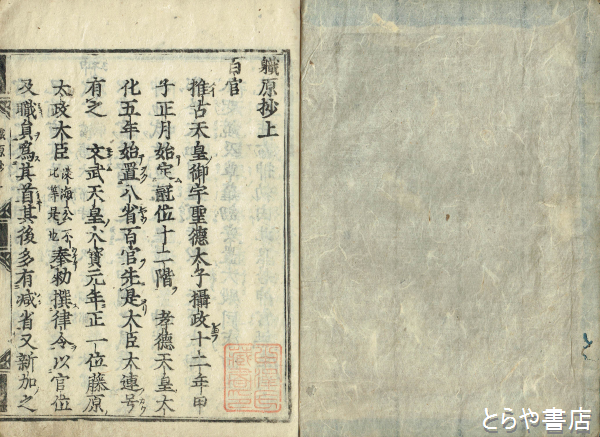 職原抄上
百官
推古天皇御宇聖德太子攝政十二年甲
子正月始定冠位十二階 孝德天皇大
化五年始置八省百官先是大臣大連号
有之 文武天皇大寶元年正一位藤原
太政大臣淡海公不比等是也奉勅撰律令以官位
及職員爲其首其後多有減省又新加之
とらや書店